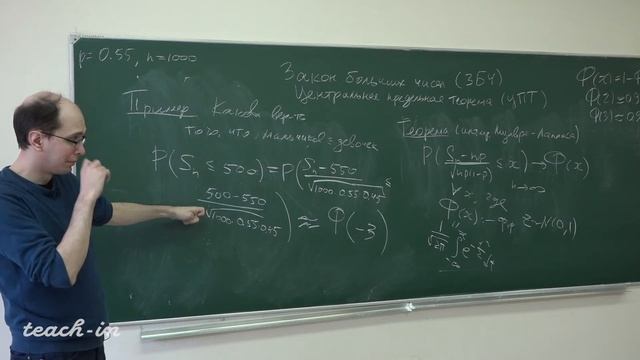 p = 0.55, n = 1000
Закон больших чисел (ЗБЧ)
Центральная предельная теорема (ЦПТ)
Пример Какова вер-ть
того, что мальчиков ≤ девочек
P(Sₙ ≤ 500) = P( (Sₙ − 550)/√(1000·0.55·0.45) ≤
(500 − 550)/√(1000·0.55·0.45) ) ≈ Φ(−3)
Теорема (интегр Муавра-Лапласа)
P( (Sₙ − np)/√(np(1−p)) ≤ x ) → Φ(x)
n→∞
∀x, где
Φ(x) − ф.р. Z~N(0,1)
Φ(x) = 1 −
Φ(2) ≈ 0.9
Φ(3) ≈ 0.9
teach-in